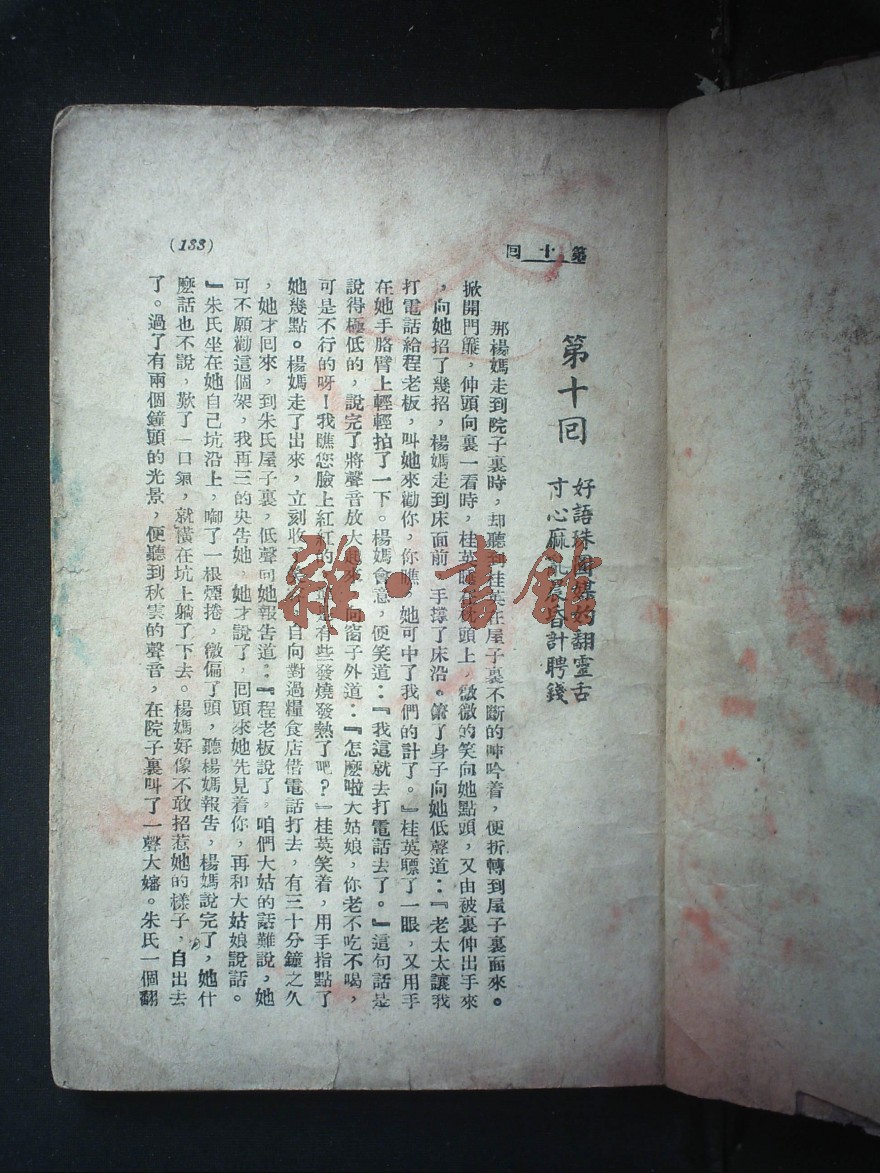 第十回
(133)
第十回
好語珠圓媒妁翻靈舌
寸心麻亂晨昏計聘錢
那楊媽走到院子裏時，却聽到桂英在屋子裏不斷的呻吟着，便折轉到屋子裏面來。
掀開門簾，伸頭向裏一看時，桂英睡在枕頭上，微微的笑向她點頭，又由被裏伸出手來
，向她招了幾招，楊媽走到床面前，手撐了床沿。俯了身子向她低聲道：『老太太讓我
打電話給程老板，叫她來勸你，你瞧，她可中了我們的計了。』桂英瞟了一眼，又用手
在她手胳臂上輕輕拍了一下。楊媽會意，便笑道：『我這就去打電話去了。』這句話是
說得極低的，說完了將聲音放大起來，向窗子外道：『怎麼啦大姑娘，你老不吃不喝，
可是不行的呀！我瞧您臉上紅紅的，有些發燒發熱了吧？』桂英笑着，用手指點了
她幾點。楊媽走了出來，立刻收自向對過糧食店借電話打去，有三十分鐘之久
，她才回來，到朱氏屋子裏，低聲向她報告道：『程老板說了，咱們大姑的話難說，她
可不願勸這個架，我再三的央告她，她才說了，回頭來她先見着你，再和大姑娘說話。
』朱氏坐在她自己坑沿上，啣了一根煙捲，微偏了頭，聽楊媽報告，楊媽說完了，她什
麼話也不說，歎了一口氣，就橫在坑上躺了下去。楊媽好像不敢招惹她的樣子，自出去
了。過了有兩個鐘頭的光景，便聽到秋雲的聲音，在院子裏叫了一聲大嬸。朱氏一個翻
雜·書館